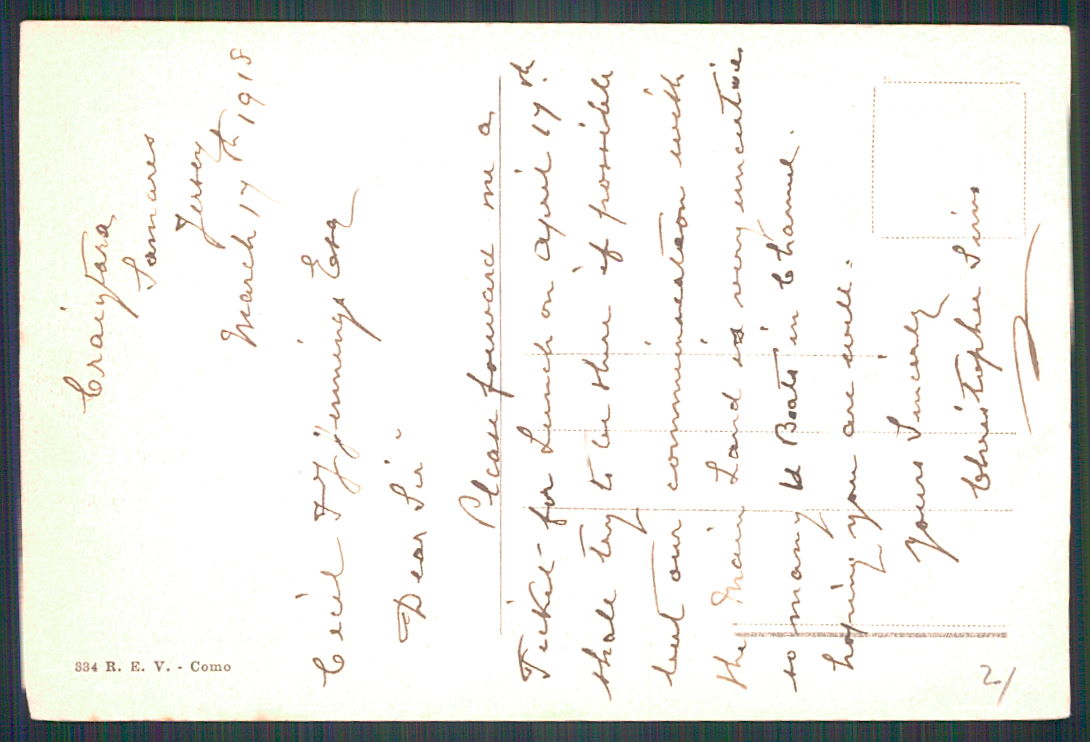 Craigtara
Samares
Jersey
March 17th 1918
Cecil F J Jennings Esq
Dear Sir
Please forward me a
Ticket for Lunch on April 17th
shall try to be there if possible
but our communication with
the Main Land is very uncertain
so many U Boats in Channel.
hoping you are well.
yours Sincerely
Christopher Sims
334 R. E. V. - Como